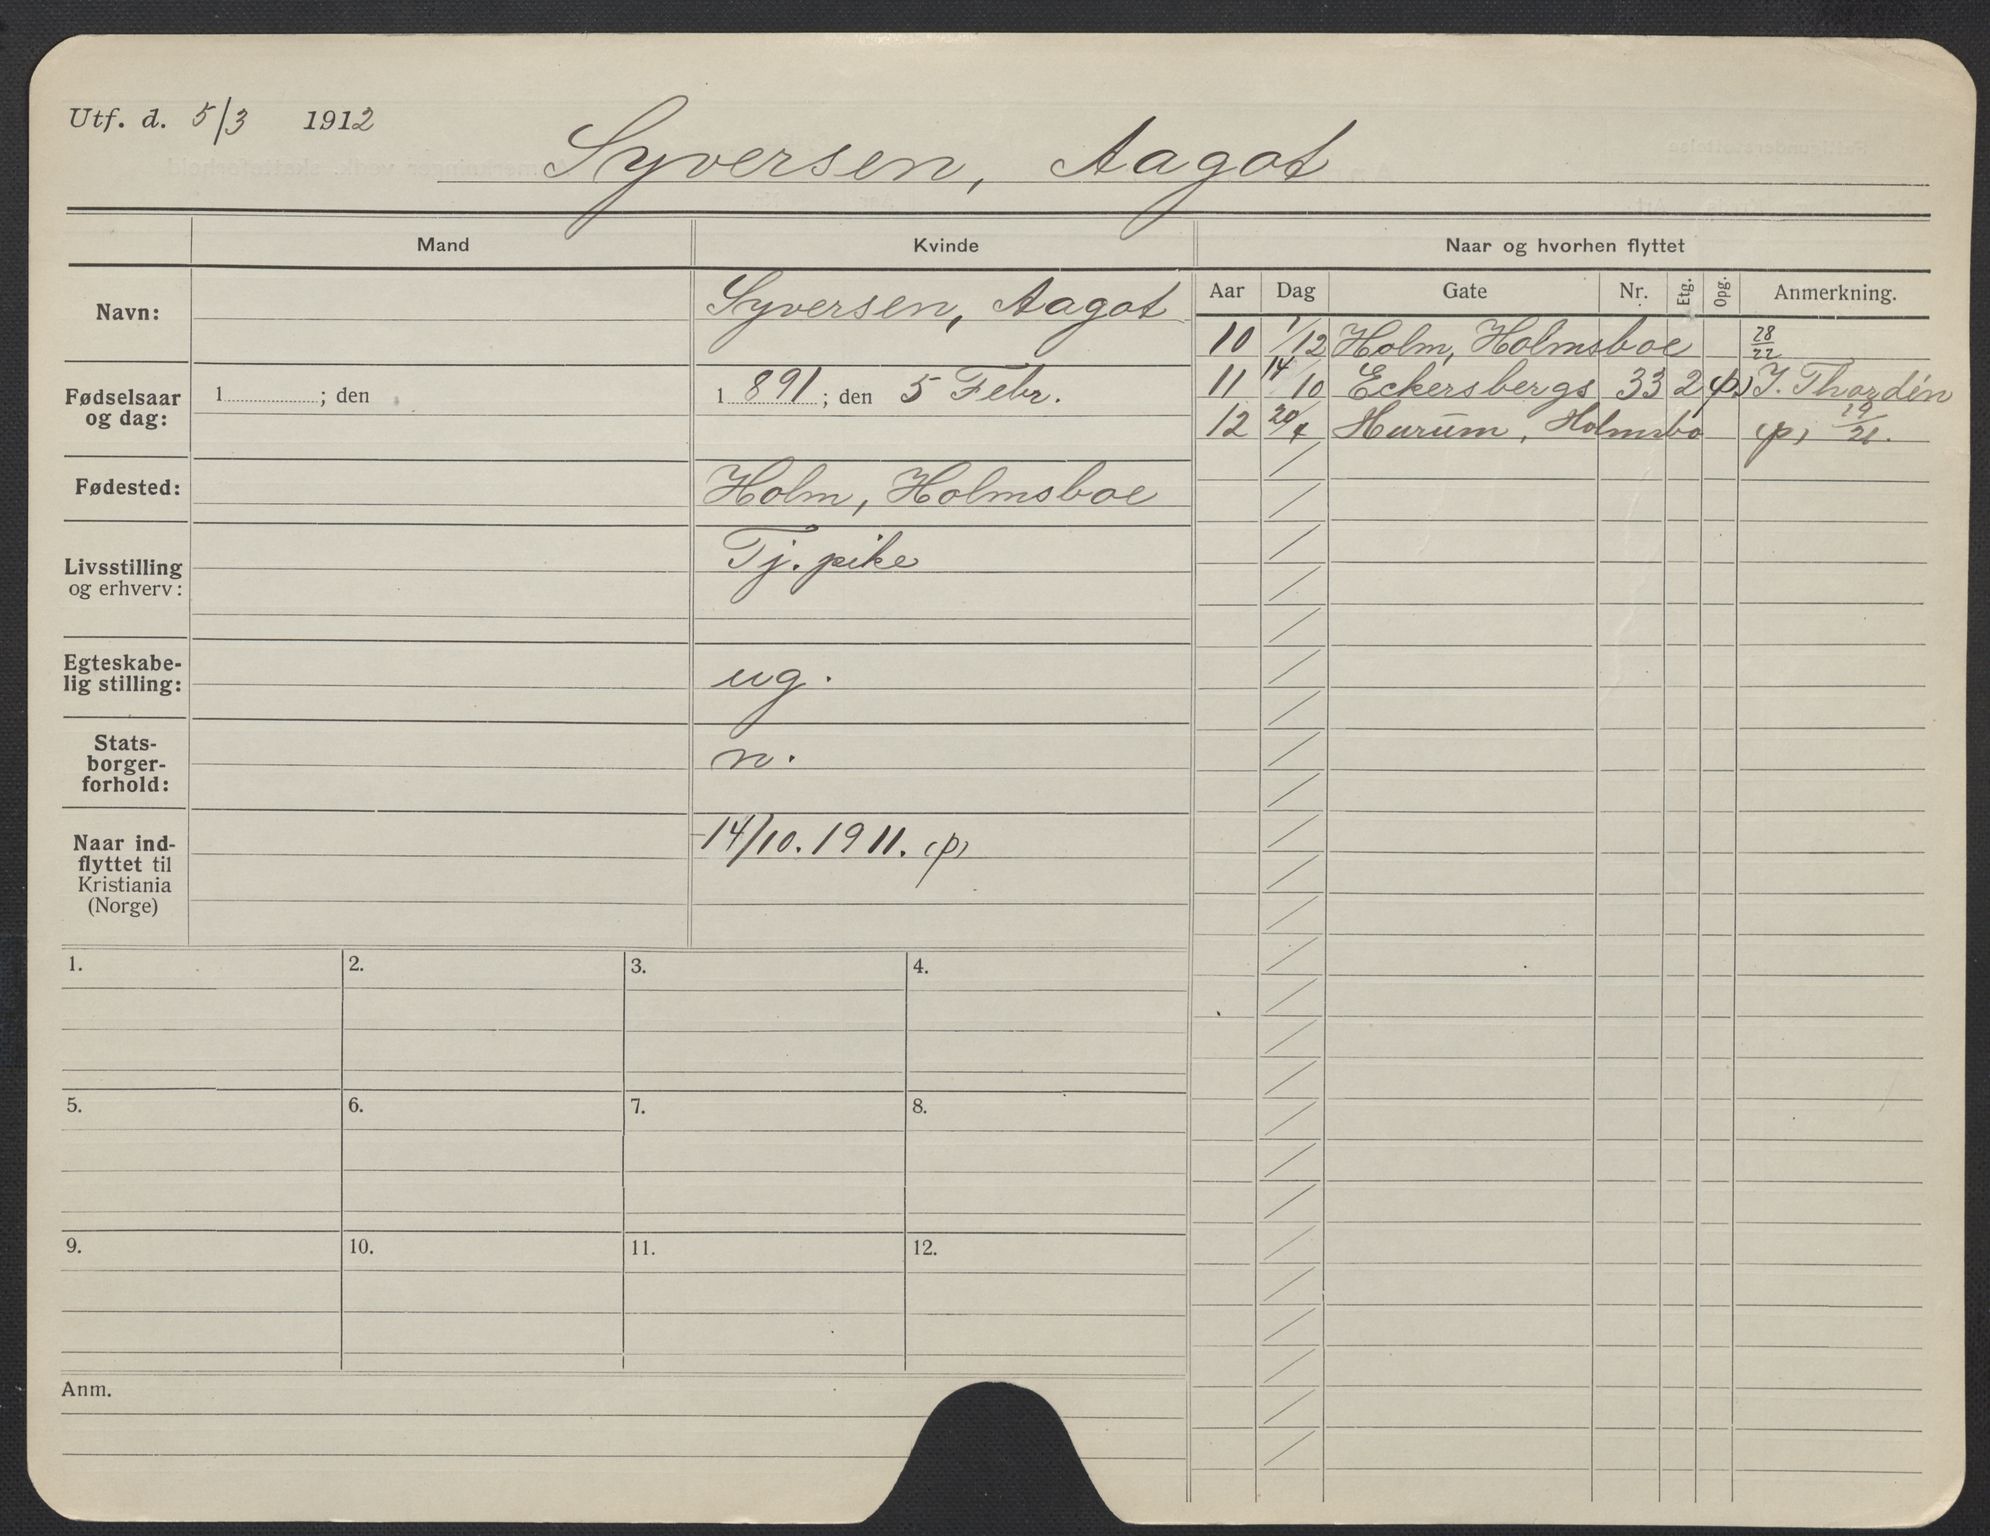 Utf. d. 5/3 1912
Syversen, Aagot
Mand
Kvinde
Naar og hvorhen flyttet
Navn:
Syversen, Aagot
Fødselsaar og dag:
1 ; den
1 891 ; den 5 Febr.
Fødested:
Holm, Holmsboe
Livsstilling og erhverv:
Tj. pike
Egteskabe-
lig stilling:
ug.
Stats-
borger-
forhold:
n.
Naar ind-
flyttet til
Kristiania
(Norge)
14/10. 1911. (p)
Aar Dag Gate Nr. Etg. Opg. Anmerkning.
10 1/12 Holm, Holmsboe 28/22
11 14/10 Eckersbergs 33 2 (p) J. Thordén
12 20/4 Hurum, Holmsbo (p) 19/21.
1. 2. 3. 4.
5. 6. 7. 8.
9. 10. 11. 12.
Anm.